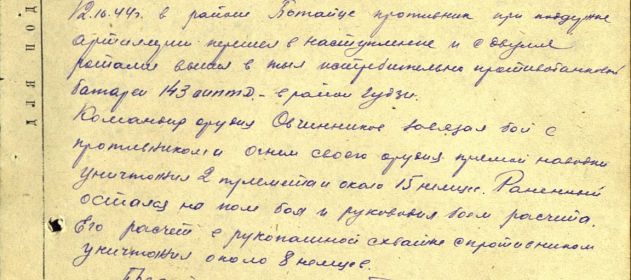 12.10.44г. в районе противник при поддержке
артилерии перешел в наступление и с двумя
ротами вышел в тыл истребительно противотанковой
батареи 143 оиптд - в район Гудзи.
Командир орудия Овчинников завязал бой с
противником и огнем своего орудия прямой наводки
уничтожил 2 пулемета и около 15 немцев. Раненный
остался на поле боя и руководил боем расчета.
Его расчет в рукопашной схватке с противником
уничтожил около 8 немцев.
ДЛЯ ПОД